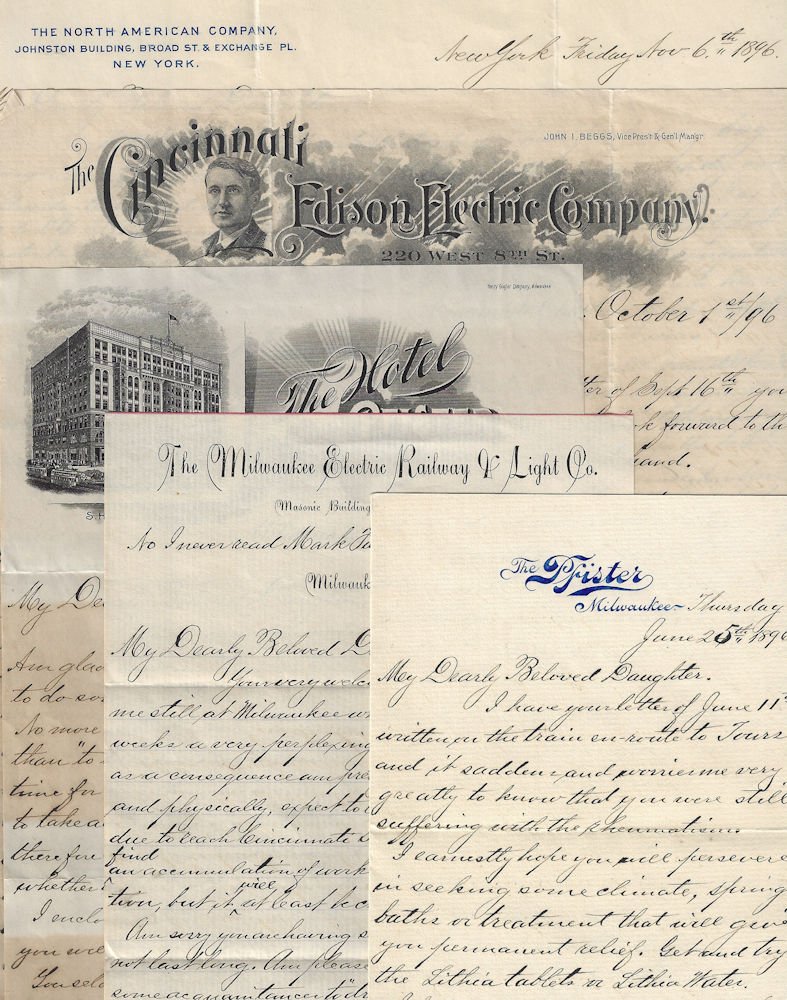 THE NORTH AMERICAN COMPANY,
JOHNSTON BUILDING, BROAD ST. & EXCHANGE PL.
NEW YORK.
New York Friday Nov 6th 1896.
JOHN I. BEGGS, Vice Pres't & Gen'l Man'gr
The Cincinnati
Edison Electric Company.
220 WEST 8TH ST.
October 1st/96
ter of Sept 16th you
k forward to th
hand.
The Hotel
S.H
My De
Am glad
to do so
No more
than "to
time for
to take a
therefore
whether
I enclo
you wi
You sele
The Milwaukee Electric Railway & Light Co.
Masonic Building
No I never read Mark Tw
Milwauk
My Dearly Beloved D
Your very welc
me still at Milwaukee w
weeks a very perplexing
as a consequence am pre
and physically, expect to
due to reach Cincinnati
find
an accumulation of work
will
tion, but it at least be c
Am sorry you are having s
not last long. Am please
some acquaintances to dr
The Pfister
Milwaukee Thursday
June 25th 1896
My Dearly Beloved Daughter.
I have your letter of June 11th
written on the train en-route to Tours
and it saddens and worries me very
greatly to know that you were still
suffering with the rheumatism.
I earnestly hope you will persevere
in seeking some climate, spring
baths or treatment that will give
you permanent relief. Get and try
the Lithia tablets or Lithia Water.